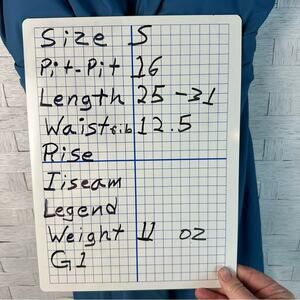 Size S
Pit-Pit 16
Length 25-31
Waist rib 12.5
Rise
Iiseam
Legend
Weight 11 oz
G1